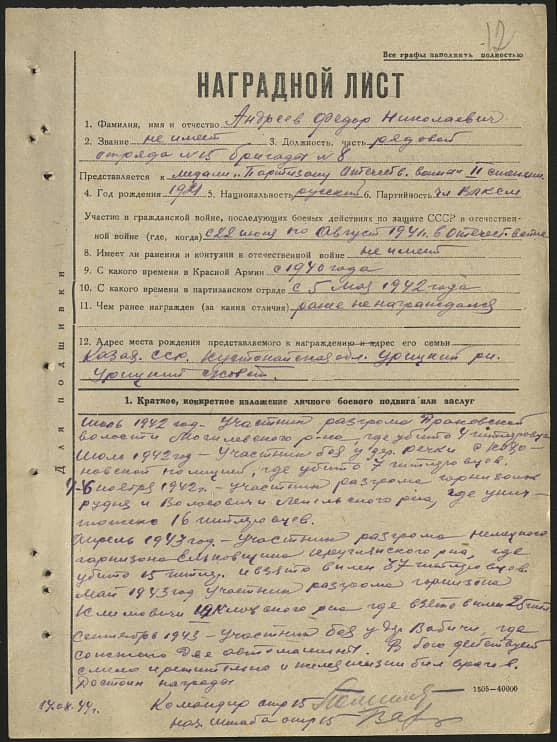 12
Все графы заполнять полностью
НАГРАДНОЙ ЛИСТ
1. Фамилия, имя и отчество Андреев Федор Николаевич
2. Звание не имеет 3. Должность, часть рядовой
отряда №15 бригады №8
Представляется к медали "Партизану Отечеств. войны" II степени
4. Год рождения 1921 5. Национальность русский 6. Партийность чл ВЛКСМ
Участие в гражданской войне, последующих боевых действиях по защите СССР и отечествен-
ной войне (где, когда) с 22 июня по август 1941г. в отечест. войне
8. Имеет ли ранения и контузии в отечественной войне не имеет
9. С какого времени в Красной Армии с 1940 года
10. С какого времени в партизанском отряде с 5 мая 1942 года
11. Чем ранее награжден (за какие отличия) ранее не награждался
12. Адрес места рождения представляемого к награждению и адрес его семьи
Казах. ССР, Кустанайская обл. Урицкий рн.
Урицкий с/совет.
Для подшивки
1. Краткое, конкретное изложение личного боевого подвига или заслуг
1942 год - Участник разгрома
волости Могилевского р-на, где убито 4 гитлеровца
Июль 1942 год - Участник боя у дер. Речки с
полицией, где убито 7 гитлеровцев.
6 ноября 1942г. - Участник разгрома гарнизона
Рудня и Волосовичи Лепельского рна, где унич-
тожено 16 гитлеровцев.
Апрель 1943 год. - Участник разгрома немецкого
гарнизона Ельковщина Круглянского рна, где
убито 15 гитлер. и взято в плен 37 гитлеровцев.
Май 1943 год Участник разгрома гарнизона
Климовичи рна где взято в плен 25
Сентябрь 1943 - Участник боя у дер Вабичи, где
сожжено две автомашины. В бою действует
смело и решительно и не жалея жизни бил врагов.
Достоин награды
Командир отр 15
Нач. штаба отр 15
1505-40000